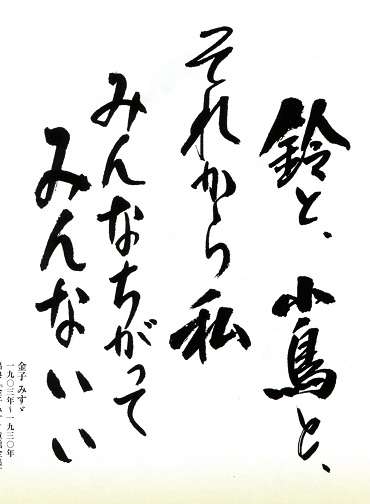 鈴と、小鳥と、
それから私
みんなちがって
みんないい
金子 みすゞ
一九〇三年〜一九三〇年